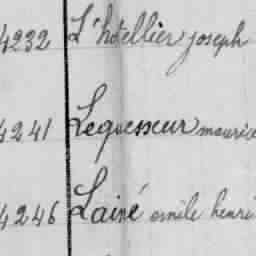 4232 L'hôtellier joseph
4241 Lequesseur maurice
4246 Lainé emile henri